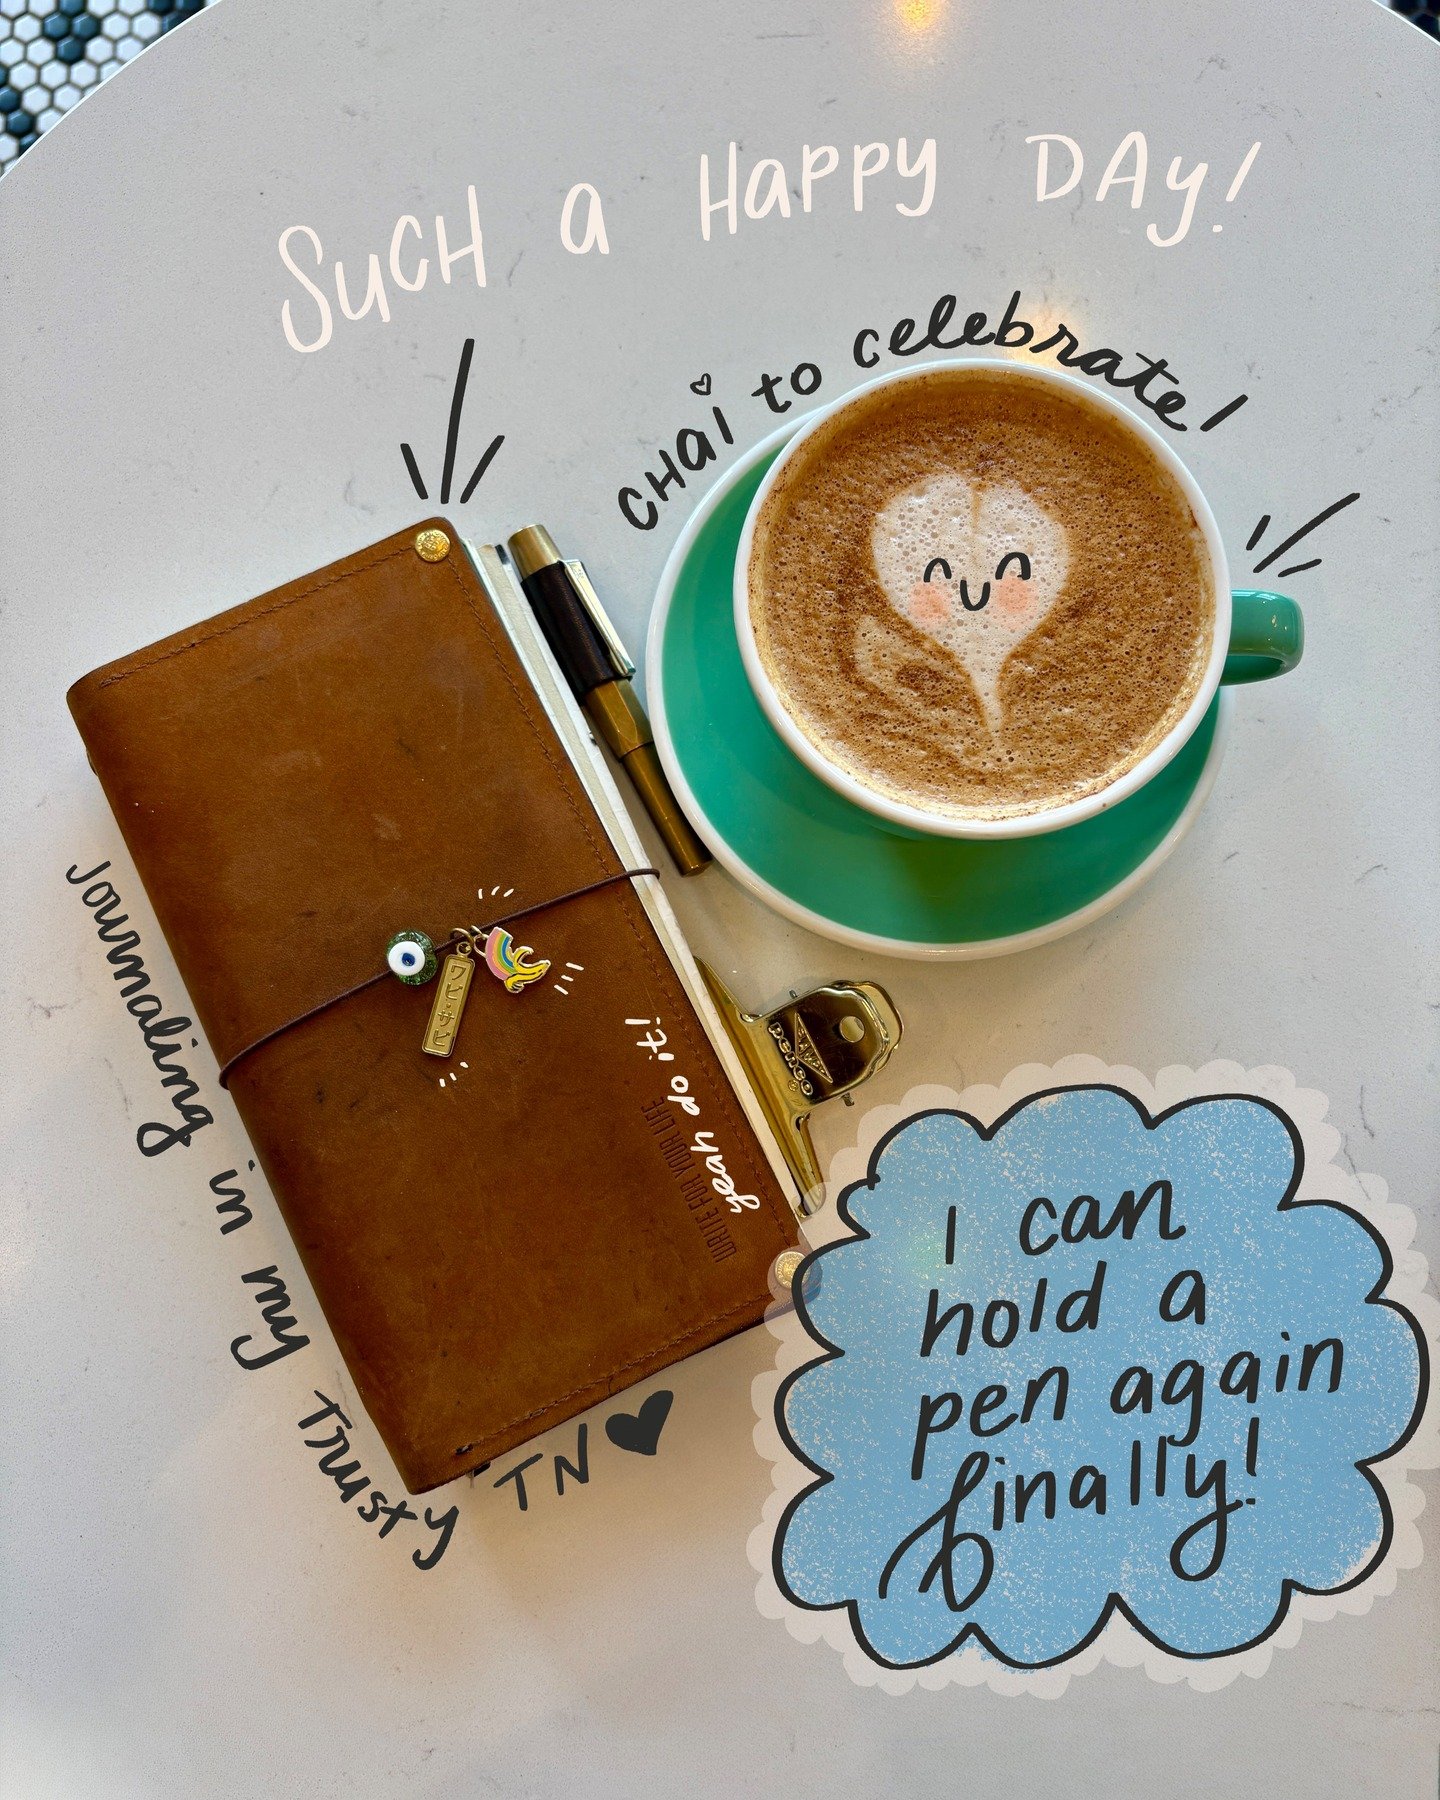 Such a Happy Day!
CHai to celebrate!
Journaling in my Trusty TN
yeah do it!
WRITE FOR YOUR LIFE
penco
I can
hold a
pen again
finally!